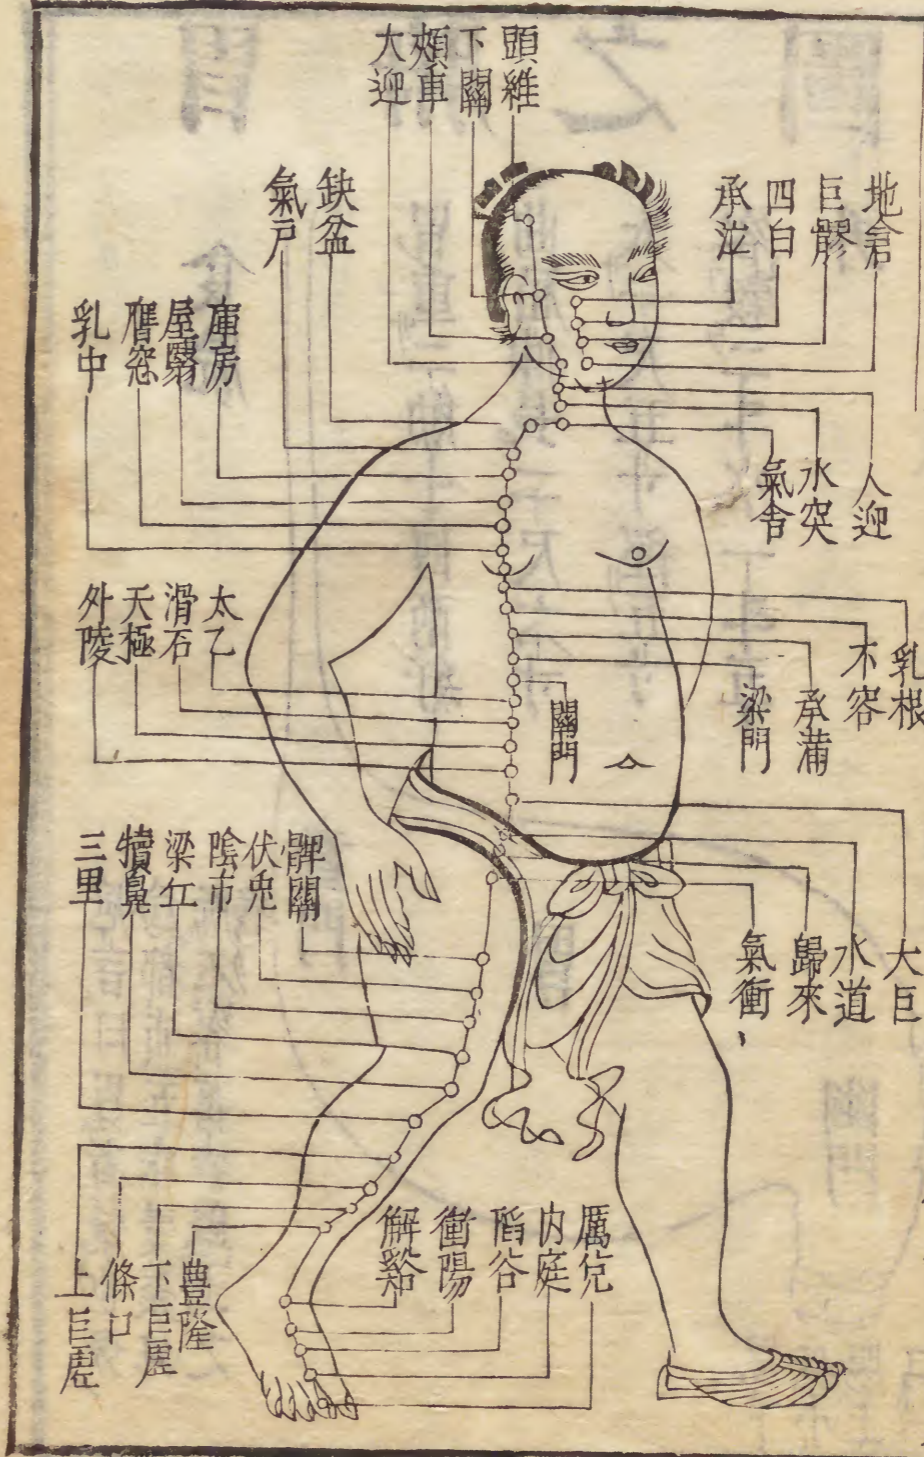 頭維
下關
頰車
大迎
地倉
巨髎
四白
承泣
缺盆
氣戶
庫房
屋翳
膺窓
乳中
人迎
水突
氣舍
太乙
滑石
天極
外陵
乳根
不容
承滿
梁門
關門
髀關
伏兎
陰市
梁丘
犢鼻
三里
大巨
水道
歸來
氣衝
厲兌
內庭
陷谷
衝陽
解谿
豊隆
下巨虛
條口
上巨虛